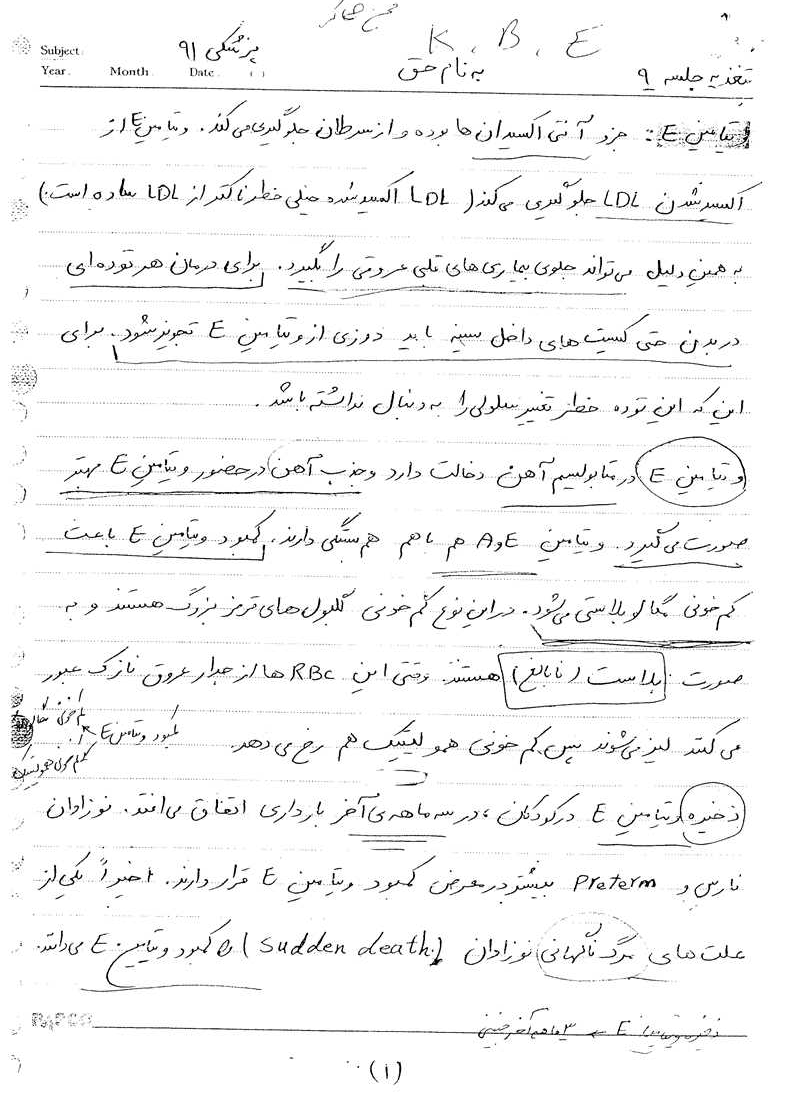 K , B , E
Subject:
پزشکی ۹۱
Year. Month. Date. ( )
به نام حق
تغذیه جلسه ۹
ویتامین E: جزء آنتی اکسیدان ها بوده و از سرطان جلوگیری می کند. ویتامین E از
اکسید شدن LDL جلوگیری می کند (LDL اکسید شده خیلی خطرناکتر از LDL ساده است.)
به همین دلیل می تواند جلوی بیماری های قلبی عروقی را بگیرد. برای درمان هر توده ای
در بدن حتی کیست های داخل سینه باید دوزی از ویتامین E تجویز شود. برای
این که این توده خطر تغییر سلولی را به دنبال نداشته باشد.
ویتامین E در متابولیسم آهن دخالت دارد و جذب آهن در حضور ویتامین E بهتر
صورت می گیرد. ویتامین A و E هم با هم همبستگی دارند. کمبود ویتامین E باعث
کم خونی مگالوبلاستی می شود. در این نوع کم خونی گلبول های قرمز بزرگ هستند و به
صورت بلاست (نابالغ) هستند. وقتی این RBC ها از جدار عروق نازک عبور
می کنند لیز می شوند پس کم خونی همولیتیک هم رخ می دهد.
کمبود ویتامین E
کم خونی همولیتیک
ذخیره ویتامین E در کودکان، در سه ماهه ی آخر بارداری اتفاق می افتد. نوزادان
نارس و Preterm بیشتر در معرض کمبود ویتامین E قرار دارند. اخیراً یکی از
علت های مرگ ناگهانی نوزادان (Sudden death) را کمبود ویتامین E می دانند.
ذخیره ویتامین E ← ۳ ماهه آخر جنینی
PAPCO
(۱)